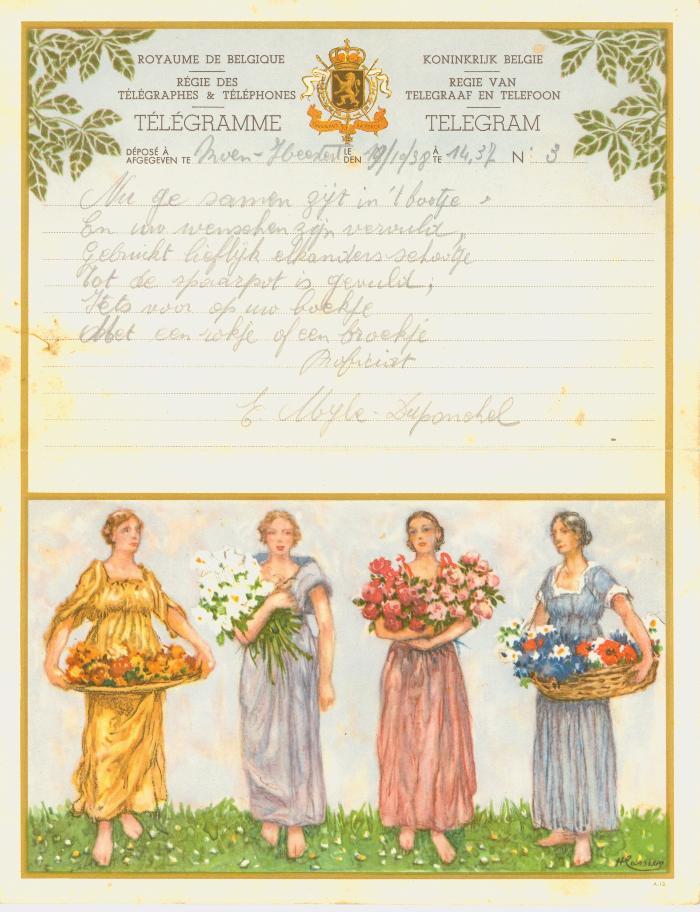 ROYAUME DE BELGIQUE
RÉGIE DES
TÉLÉGRAPHES & TÉLÉPHONES
TÉLÉGRAMME
KONINKRIJK BELGIE
REGIE VAN
TELEGRAAF EN TELEFOON
TELEGRAM
DÉPOSÉ À LE À
AFGEGEVEN TE Moen-Heestert DEN 19/10/38 TE 14,37 N° 3
Nu ge samen zijt in 't bootje
En uw wenschen zijn vervuld,
Gebruikt lieflijk elkanders schootje
Tot de spaarpot is gevuld;
Iets voor op uw boekje
Met een rokje of een broekje
Proficiat
E. Duponchel
A.12